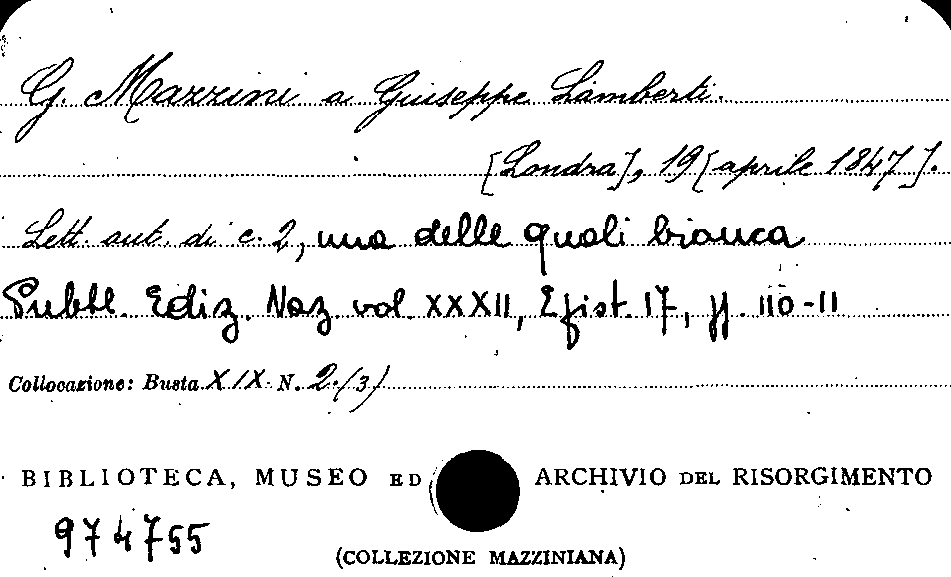 G. Mazzini a Giuseppe Lamberti.
[Londra], 19 [aprile 1847].
Lett. aut. di c. 2, una delle quali bianca
Pubbl. Ediz. Naz. vol. XXXII, Epist. 17, pp. 110-11
Collocazione: Busta XIX N. 2(3)
BIBLIOTECA, MUSEO ED ARCHIVIO DEL RISORGIMENTO
974755
(COLLEZIONE MAZZINIANA)